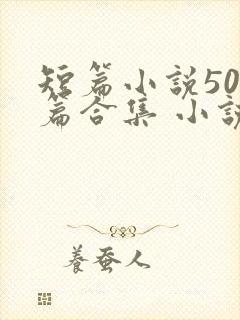 短篇小説50
篇合集 小說
養蚕人